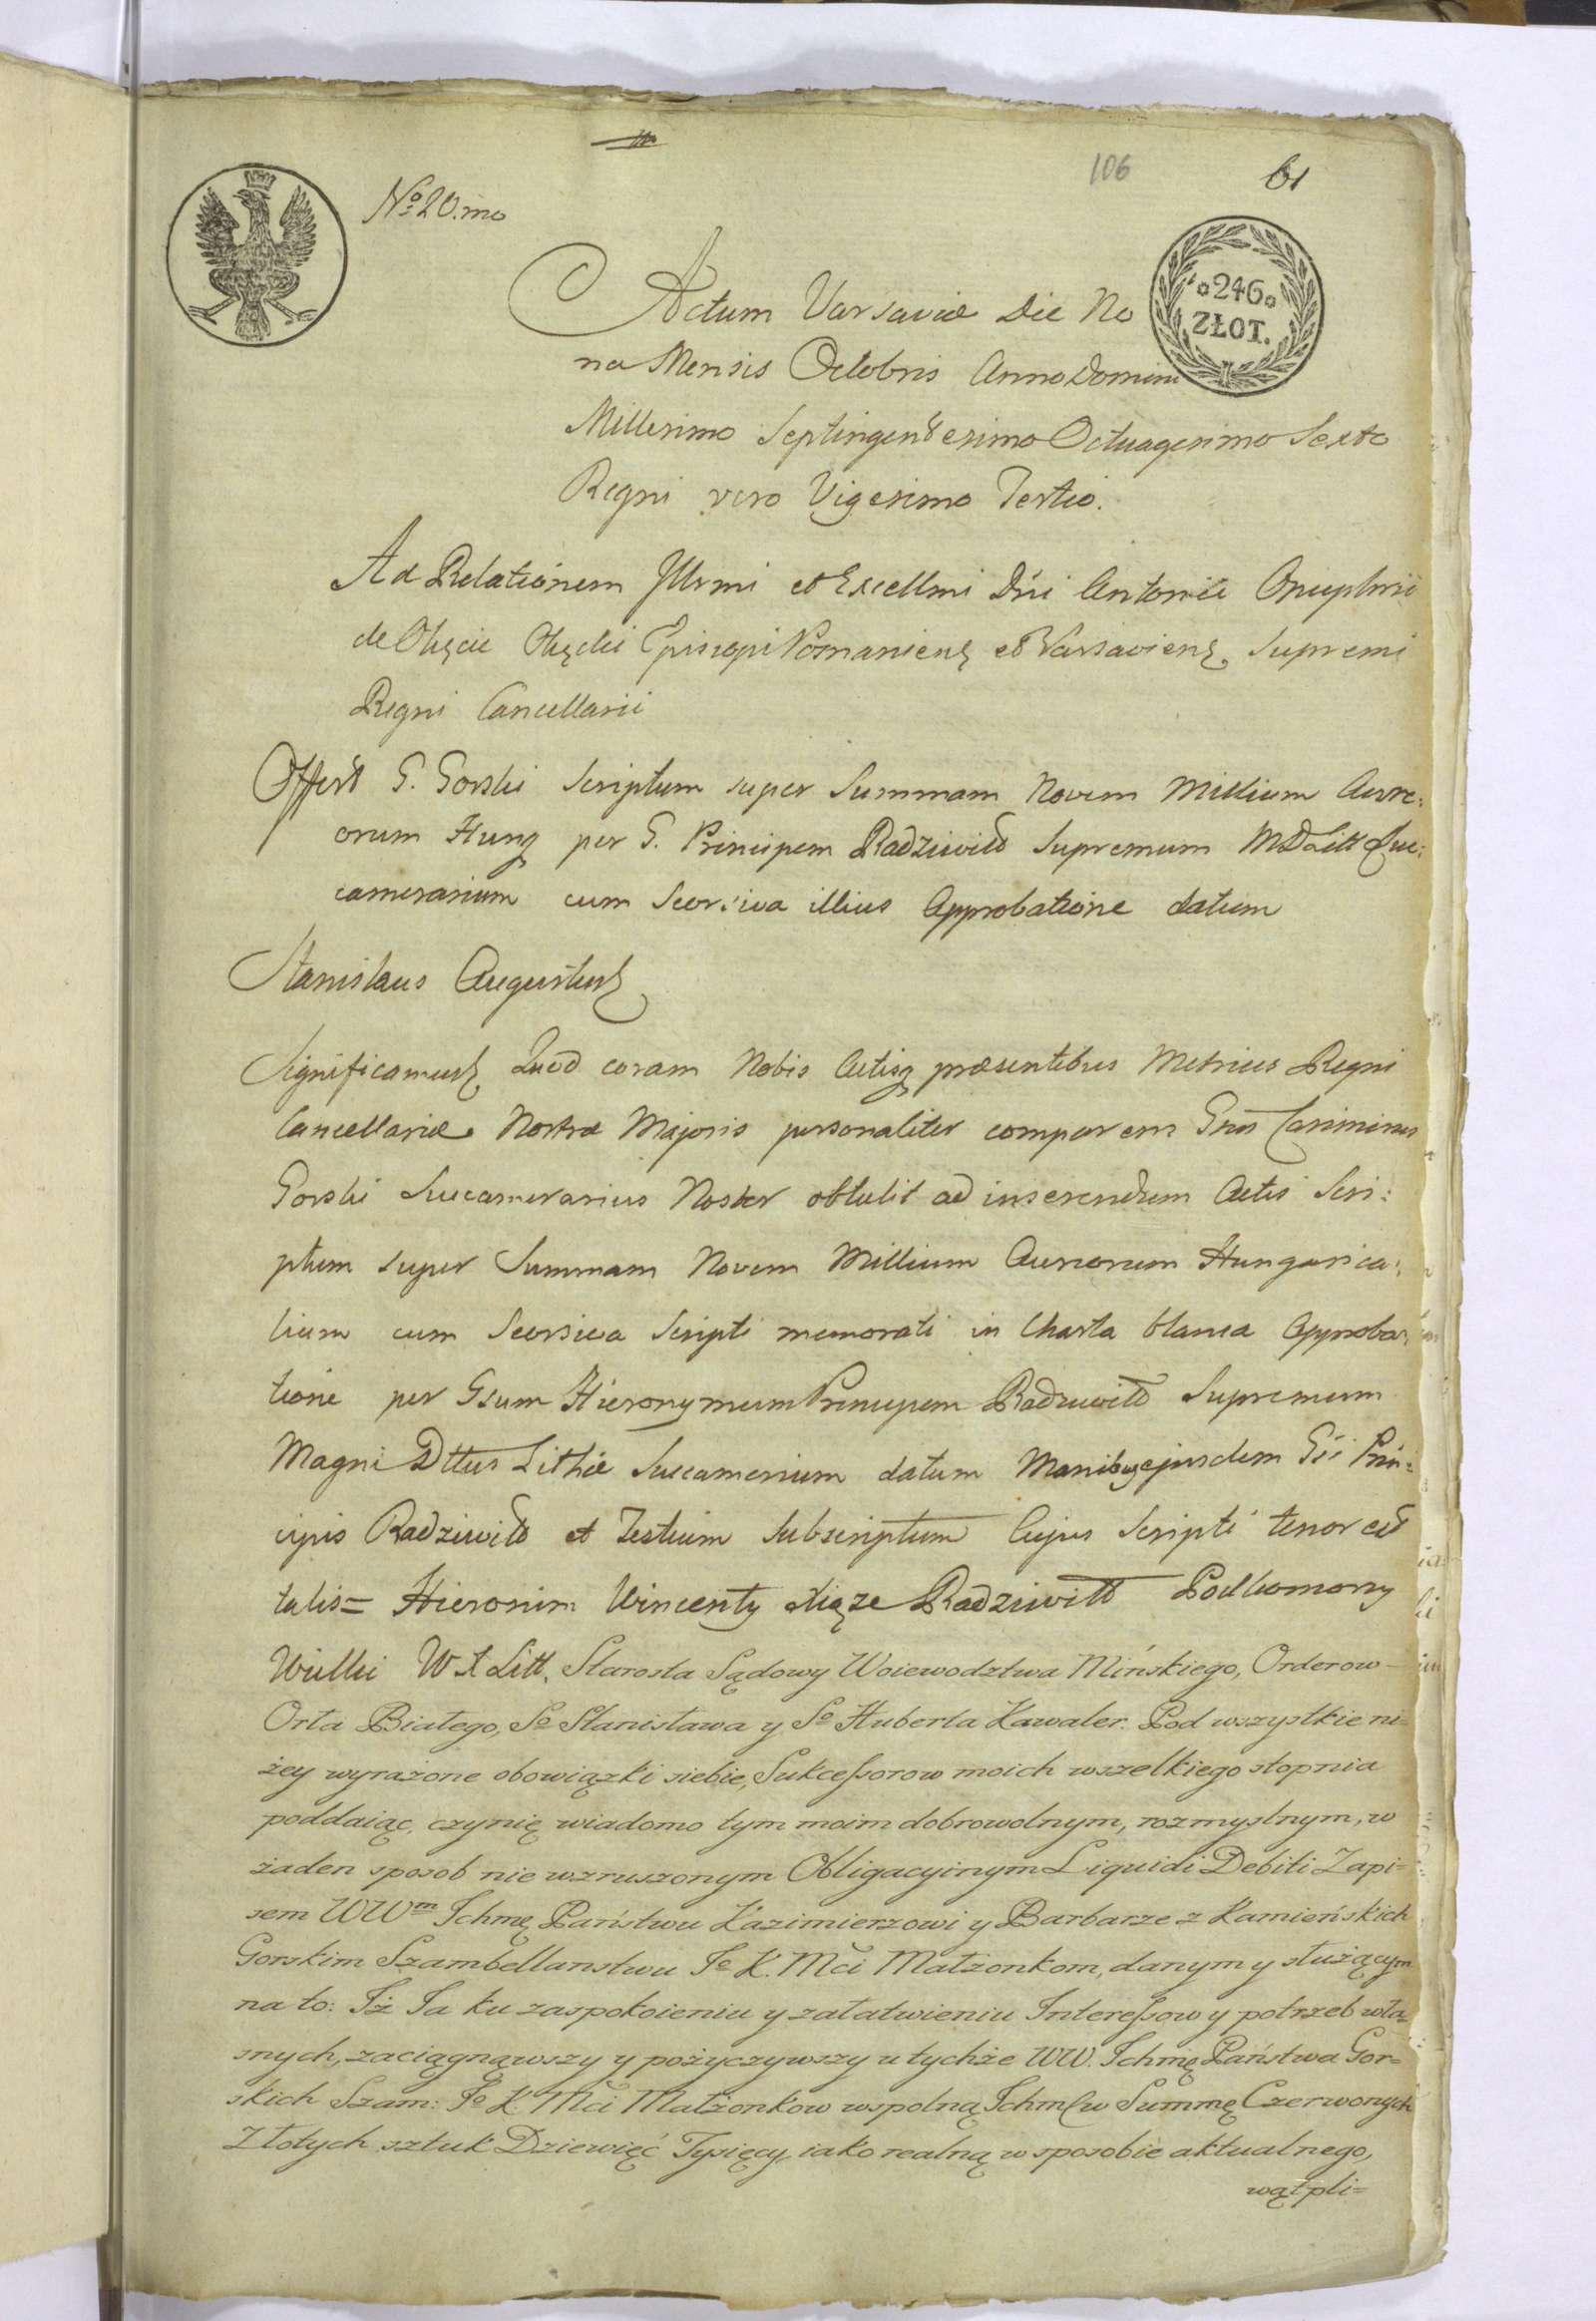 106
61
No 20.mo
246
ZŁOT.
Actum Varsaviæ Die No
na Mensis Octobris Anno Domini
Millesimo Septingentesimo Octuagesimo Sexto
Regni vero Vigesimo Tertio.
Ad Relationem Illrmi et Excellmi Dni Antonii Onuphrii
de Okęcie Okęcki Episcopi Posnaniens et Varsaviens Supremi
Regni Cancellarii
Offert G. Gorski Scriptum super Summam Novem Millium Aure:
orum Hung per G. Principem Radziwiłł Supremum MDLitt Suc:
camerarium cum Seorsiva illius Approbatione datum
Stanislaus Augustus
Significamus Quod coram Nobis Actisq præsentibus Metrices Regni
Cancellariæ Nostræ Majoris personaliter comparens Gnus Casimirus
Gorski Succamerarius Noster obtulit ad inserendum Actis Scri:
ptum super Summam Novem Millium Aureorum Hungarica:
lium cum Seorsiva Scripti memorati in Charta blanca Approba:
tione per Gsum Hieronymum Principem Radziwiłł Supremum
Magni Dttus Lithæ Succamerium datum Manibq ejusdem Gsi Prin:
cipis Radziwiłł et Testium Subscriptum Cujus Scripti tenor est
talis= Hieronim Wincenty Xiąze Radziwiłł Podkomorzy
Wielki W X Litt. Starosta Sądowy Woiewodztwa Mińskiego, Orderow
Orła Białego, So Stanisława y So Huberta Kawaler. Pod wszystkie ni=
żey wyrażone obowiązki siebie, Sukcessorow moich wszelkiego stopnia
poddaiąc, czynię wiadomo tym moim dobrowolnym, rozmyslnym, w
żaden sposob nie wzruszonym Obligacyinym Liquidi Debiti Zapi=
sem WWm Ichmę Państwu Kazimierzowi y Barbarze z Kamieńskich
Gorskim Szambellanstwu Jo K. Mci Małżonkom, danym y służącym
na to: Iż Ja ku zaspokoieniu y załatwieniu Interessow y potrzeb wła=
snych, zaciągnąwszy y pożyczywszy u tychże WW. Ichmę Państwa Gor=
skich Szam: Jo K Mci Małżonkow wspolną Ichmw Summę Czerwonych
Złotych sztuk Dziewięć Tysięcy, iako realną w sposobie aktualnego,
wątpli=